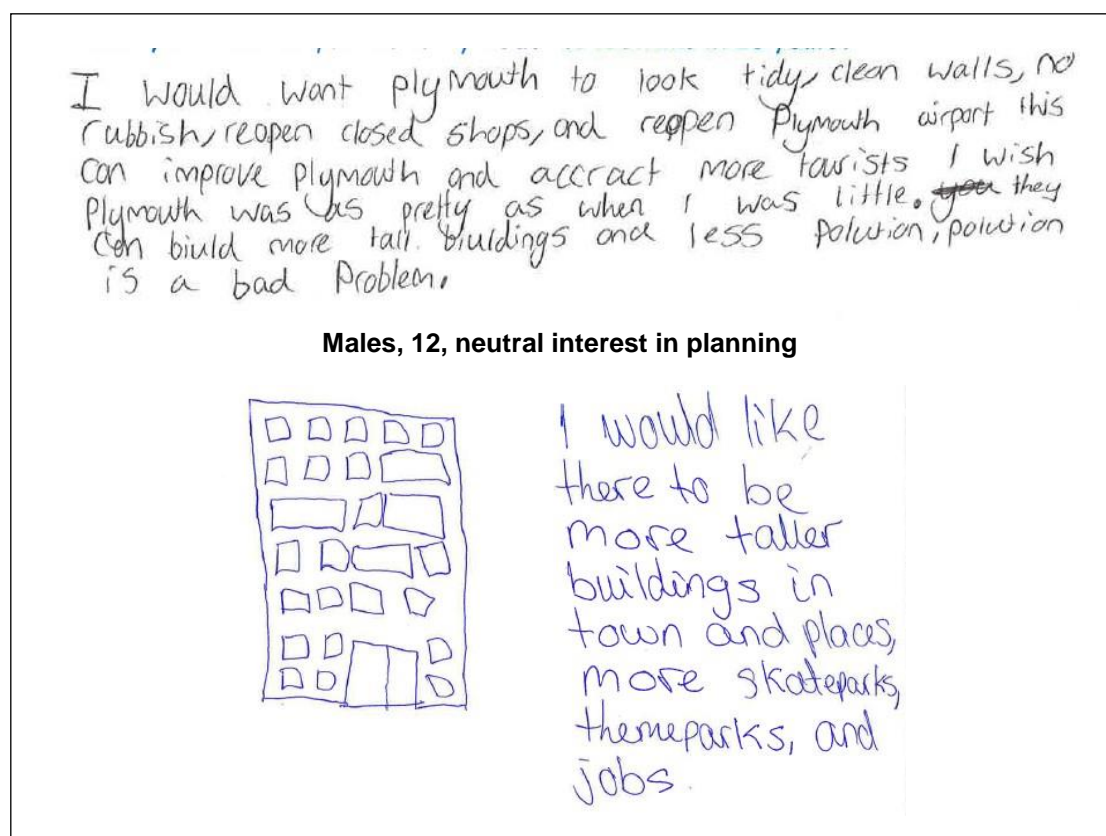 I would want plymouth to look tidy, clean walls, no
rubbish, reopen closed shops, and reopen Plymouth airport this
can improve plymouth and accract more tourists I wish
Plymouth was as pretty as when I was little. they
can biuld more tall biuldings and less polution, polution
is a bad problem.
Males, 12, neutral interest in planning
I would like
there to be
more taller
buildings in
town and places,
more skateparks,
themeparks, and
jobs.